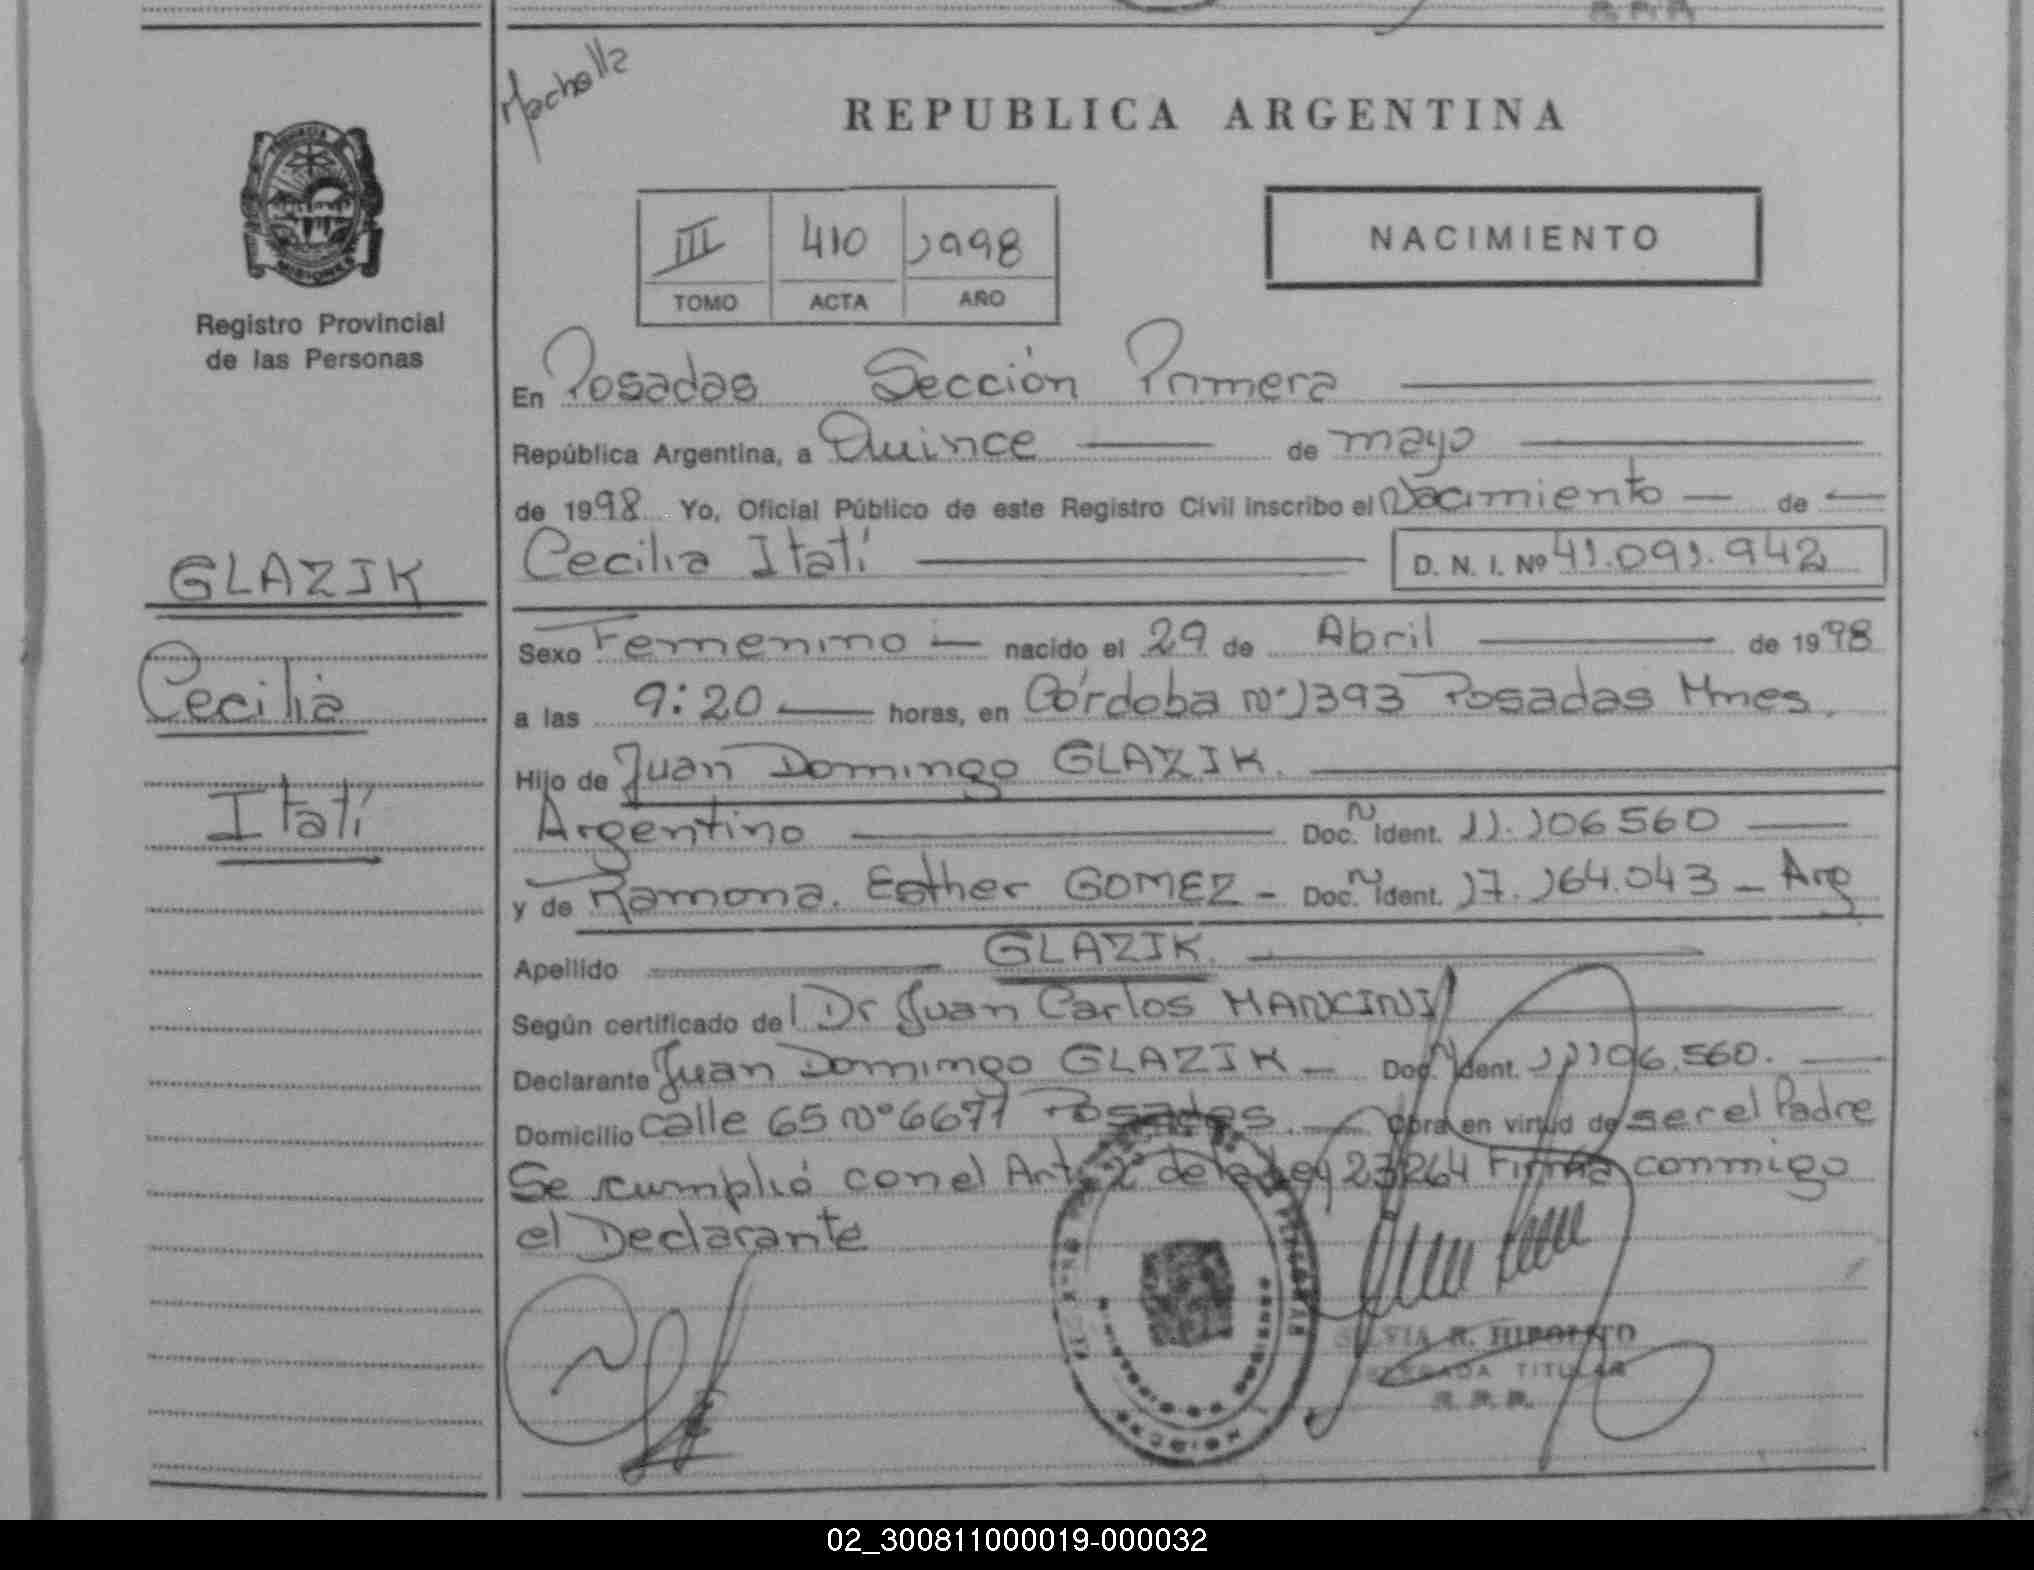 Machella
REPUBLICA ARGENTINA
MISIONES
Registro Provincial
de las Personas
III 410 1998
TOMO ACTA AÑO
NACIMIENTO
En Posadas Sección Primera
República Argentina, a Quince de mayo
de 1998 Yo, Oficial Público de este Registro Civil inscribo el Nacimiento de
Cecilia Itatí D. N. I. Nº 41.091.942
GLAZIK
Cecilia
Itatí
Sexo Femenino nacido el 29 de Abril de 1998
a las 9:20 horas, en Córdoba nº 1393 Posadas Mnes.
Hijo de Juan Domingo GLAZIK.
Argentino Doc. Ident. 11.106560
y de Ramona. Esther GOMEZ - Doc. Ident. 17.164.043 - Arg
Apellido GLAZIK.
Según certificado del Dr Juan Carlos MANCINI
Declarante Juan Domingo GLAZIK - Doc. Ident. 11106.560.
Domicilio calle 65 nº 6677 Posadas. Obra en virtud de ser el Padre
Se cumplió con el Art. 2º de la Ley 23264 Firma conmigo
el Declarante
SILVIA R. HIPOLITO
TITULAR
R. P. P.
02_300811000019-000032